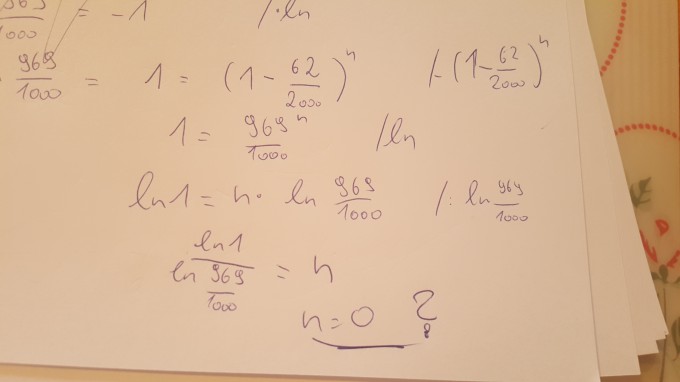 969/1000 = -1 /·ln
969/1000 = 1 = (1 - 62/2000)^n /-(1 - 62/2000)^n
1 = 969^n/1000 /ln
ln1 = n · ln 969/1000 /: ln 969/1000
ln1/ln 969/1000 = n
n = 0 ?